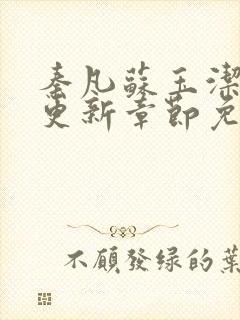 秦凡蘇玉潔
更新章節免
不願發绿的葉